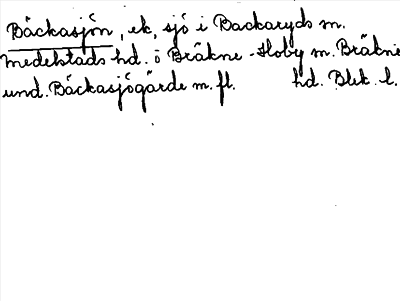 Bäckasjön, ek, sjö i Backaryds m.
Medelstads hd. ö Bräkne-Hoby m. Bräkne
und. Bäckasjögärde m. fl. hd. Blek. l.